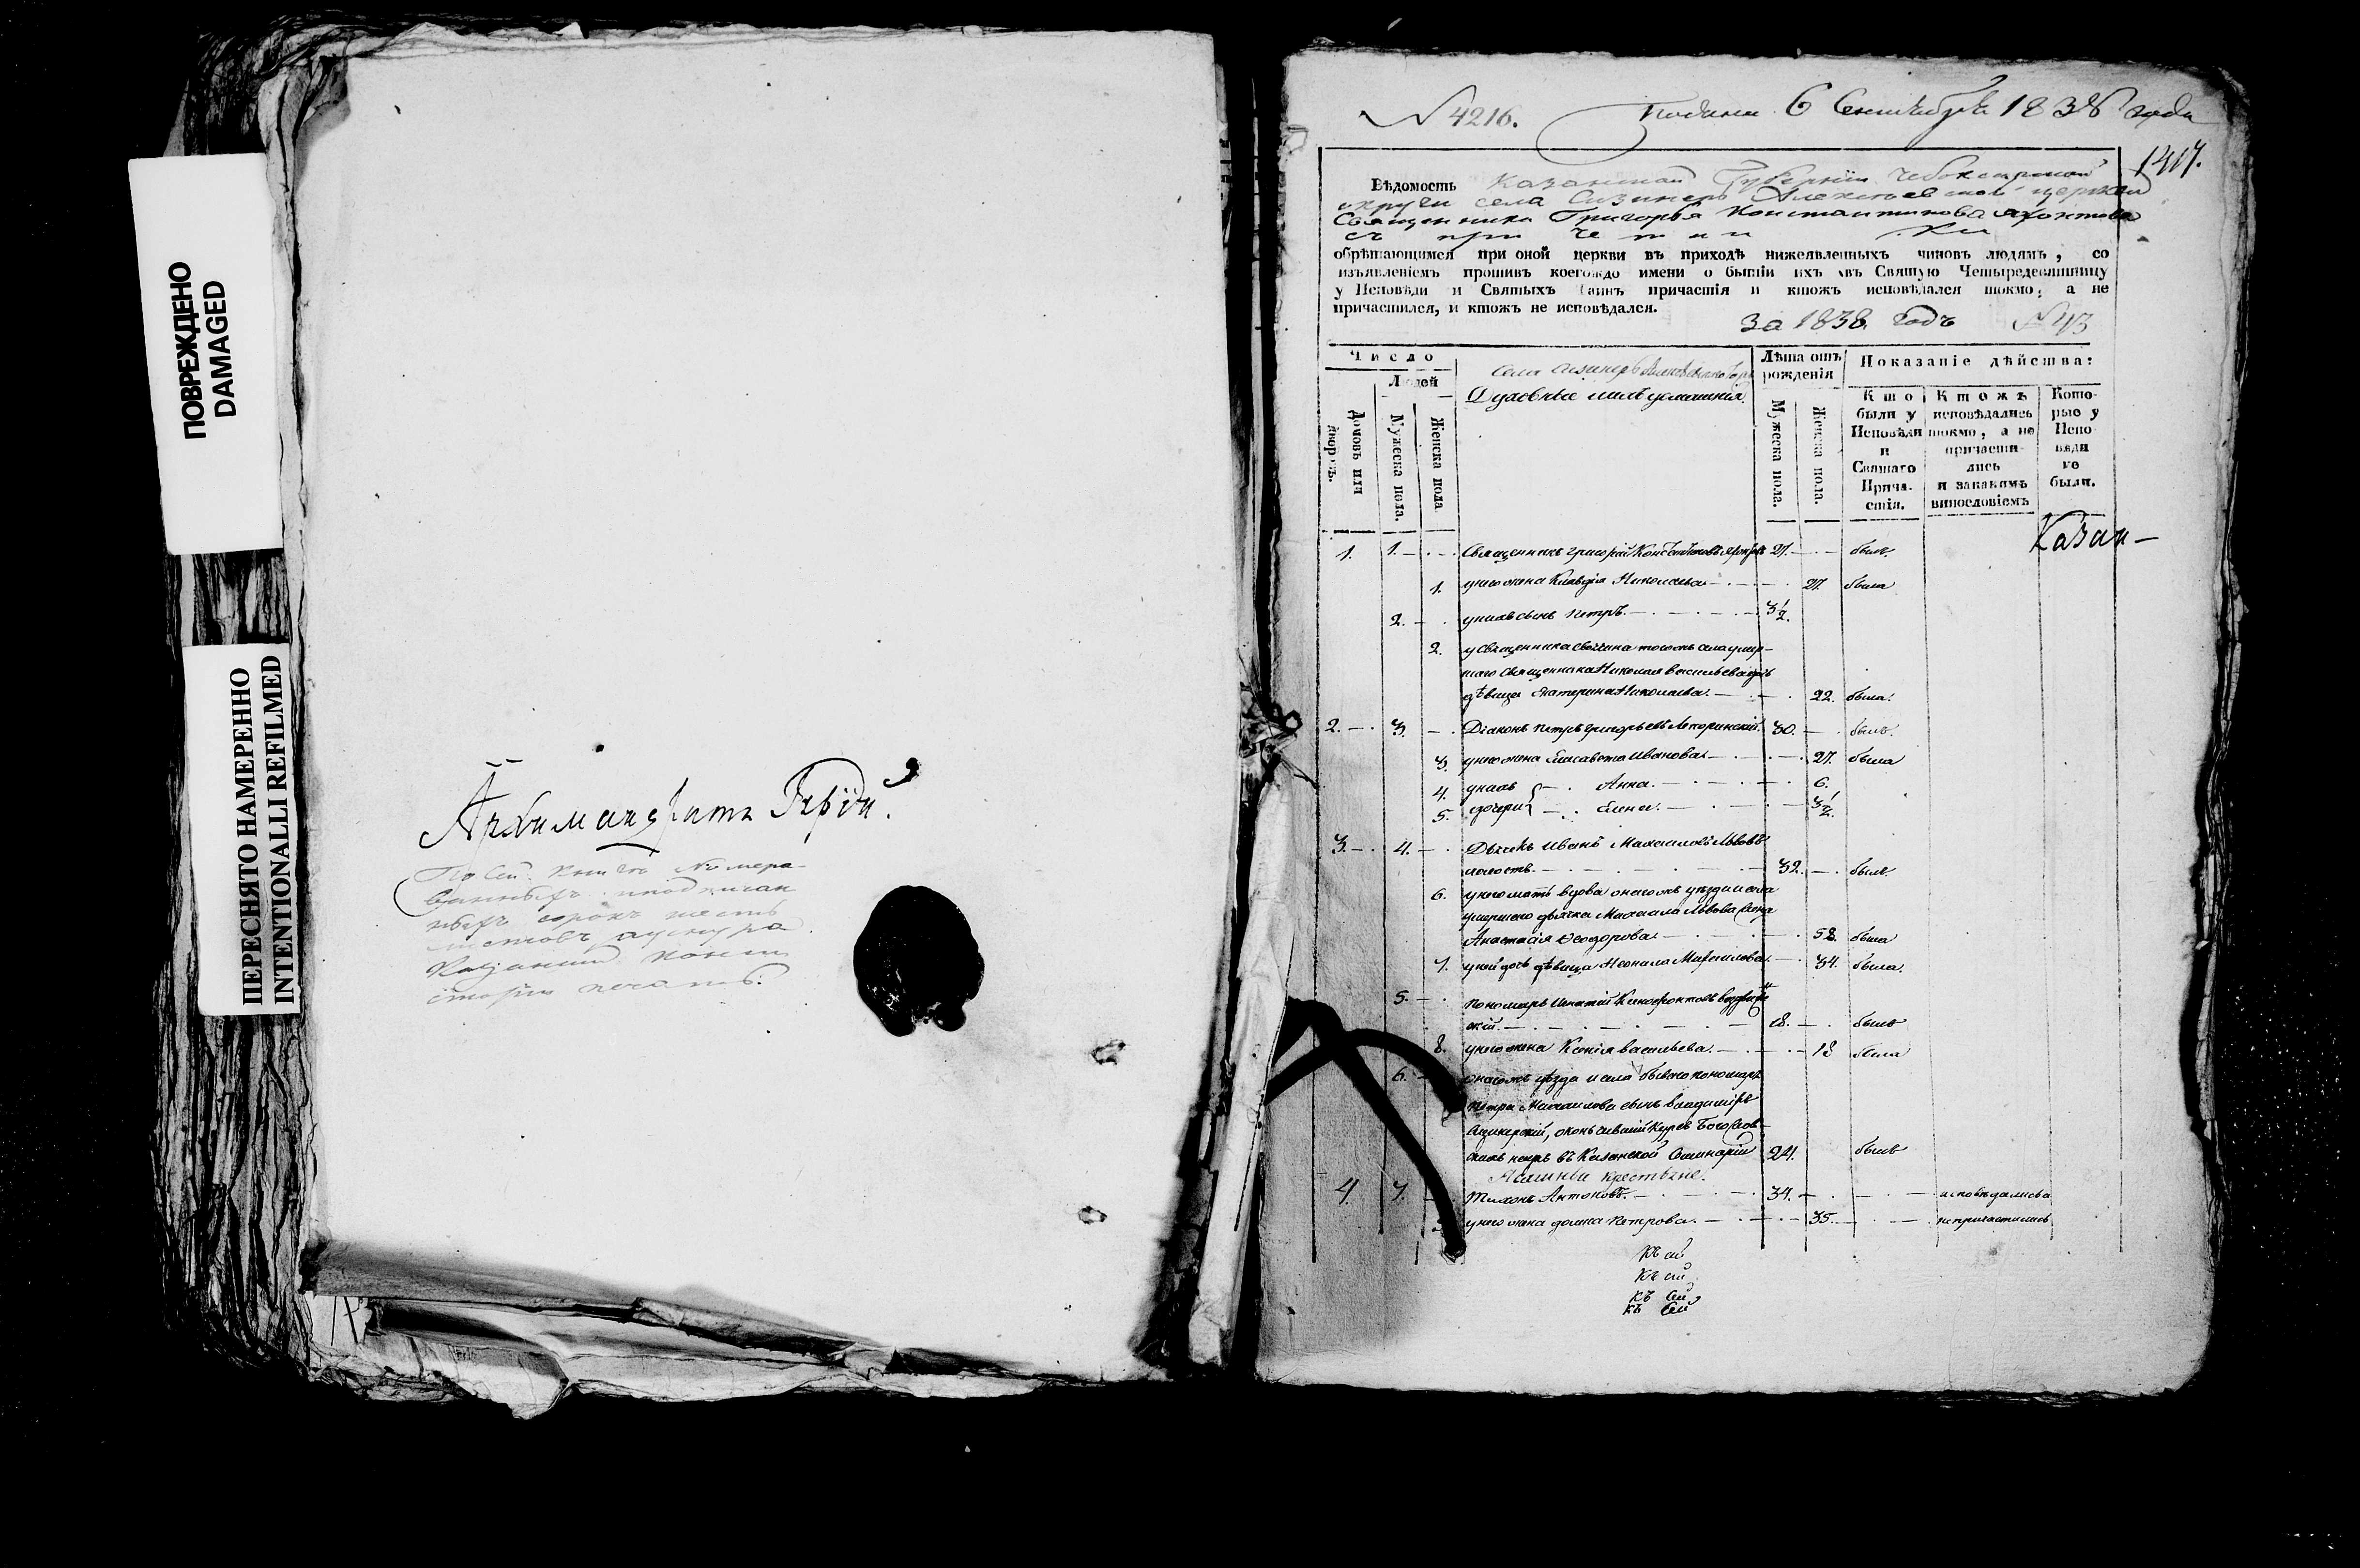 ПОВРЕЖДЕНО
DAMAGED
ПЕРЕСНЯТО НАМЕРЕННО
INTENTIONALLI REFILMED
Архимандритъ
По сей книгѣ Номера-
листовъ
печать.
№ 4216. Подана 6 Сентября 1838 года
1417.
Вѣдомость Казанской Губерніи Чебоксарской
округи села церкви
Священника Григорья Константинова Яхонтова
съ при че т ни ки
обрѣтающимся при оной церкви въ приходѣ нижеявленныхъ чиновъ людямъ, со
изъявленіемъ противъ коегождо имени о бытіи ихъ въ Святую Четыредесятницу
у Исповѣди и Святыхъ Таинъ причастія и ктожъ исповѣдался токмо, а не
причастился, и ктожъ не исповѣдался.
за 1838 годъ № 43
Число
Людей
Домовъ или дворовъ.
Мужеска пола.
Женска пола
села
Духовные и ихъ домашнія.
Лѣта отъ рожденія
Мужеска пола.
Женска пола.
Показаніе дѣйства:
Кто были у Исповѣди и Святаго Причастія.
Ктожъ исповѣдались токмо, а не причастились и закакимъ винословіемъ
Которые у Исповѣди не были.
Казан-
1. 1. Священникъ Григорій Константиновъ Яхонтовъ 27. былъ.
1. у него жена Клавдія Николаева 27. была
2. у нихъ сынъ Петръ. 3½.
2. у священника своячина тогожъ села умер-
шаго священника Николая Васильева дочь
дѣвица Екатерина Николаева. 22. была.
2. 3. Діаконъ Петръ Григорьевъ 30. былъ.
3. у него жена Елисавета Иванова 27. была
4. у нихъ Анна. 6.
5. дочери Елена. 3½.
3. 4. Дьячекъ Иванъ Михаиловъ Львовъ
холостъ. 32. былъ.
6. у него мать вдова онагожъ уѣзда и села
умершаго дьячка Михаила Львова жена
Анастасія Ѳеодорова. 58. была
7. у ней дочь дѣвица Неонила Михаилова. 34. была.
5. Пономарь Игнатій Ксенофонтовъ
скій. 18. былъ
8. у него жена Ксенія Васильева. 18 была
6. онагожъ уѣзда и села бывшаго пономаря
Петра Михаилова сынъ Владиміръ
окончившій курсъ Богослов-
скихъ наукъ въ Казанской Семинаріи 24. былъ
крестьяне.
4. 7. Тихонъ Антоновъ. 34. исповѣдались а
у него жена Домна Петрова. 35. не причастились
къ сей
къ сей
къ сей
къ сей